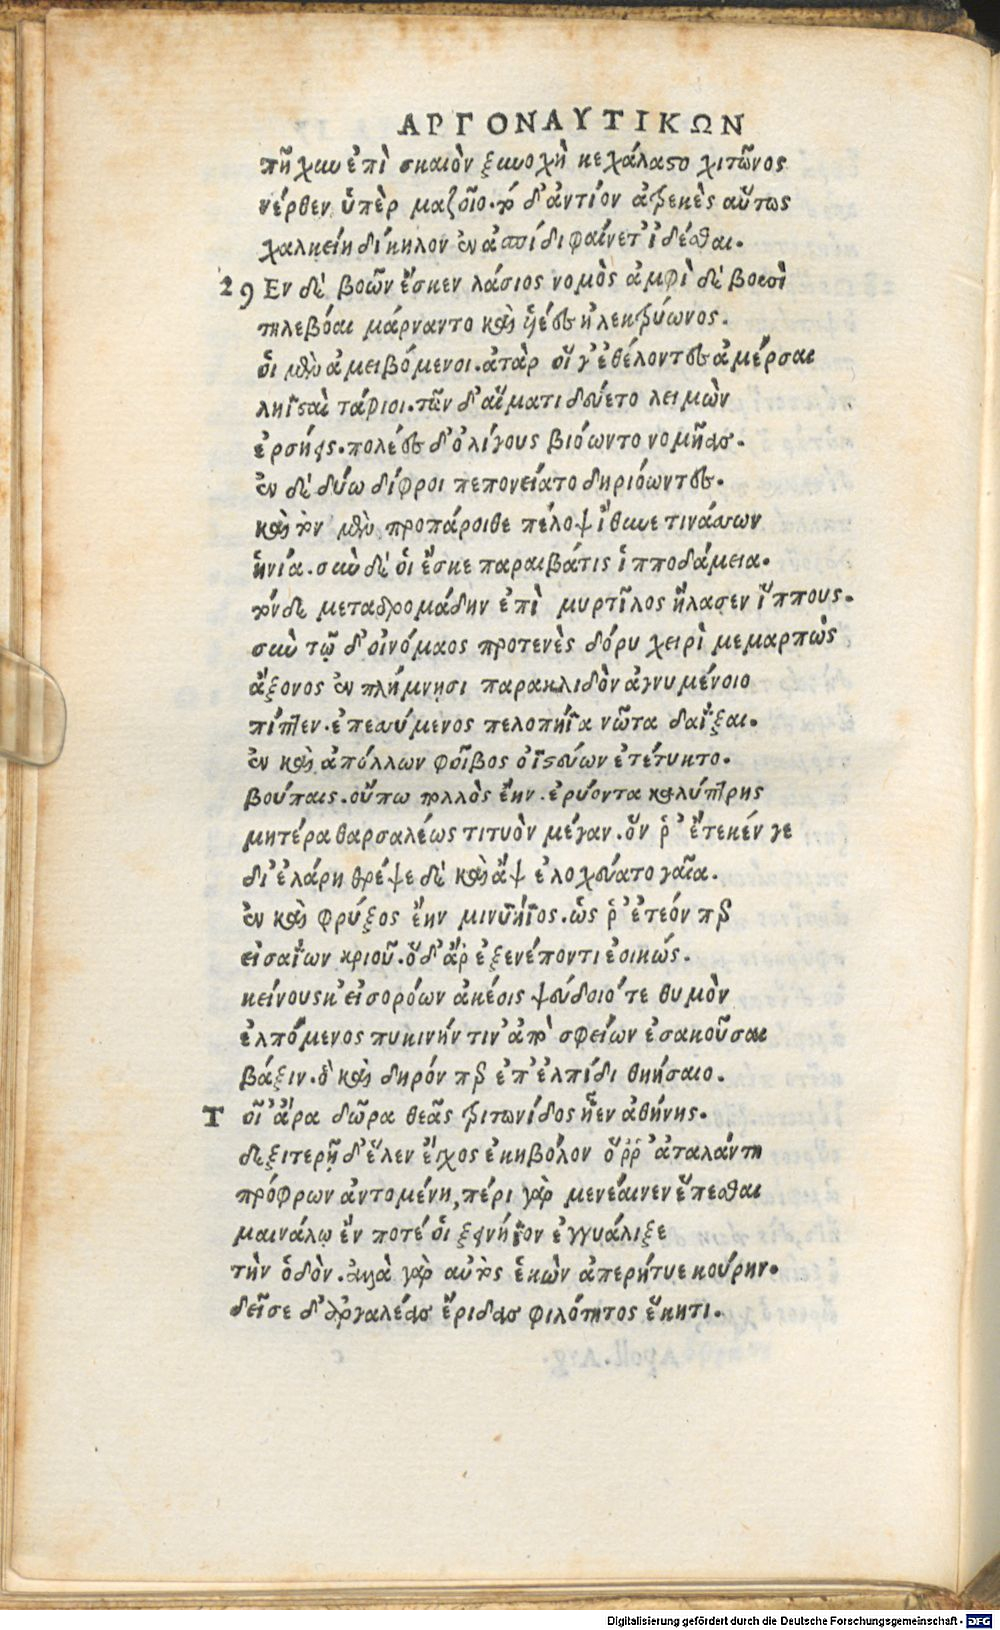 ΑΡΓΟΝΑΥΤΙΚΩΝ
πῆχυν ἐπὶ σκαιὸν ξυνοχὴ κεχάλαστο χιτῶνος
νέρθεν ὑπὲρ μαζοῖο. τὸ δ' ἀντίον ἀτρεκὲς αὔτως
χαλκείῃ δίκηλον ἐν ἀσπίδι φαίνετ' ἰδέσθαι.
29 Εν δὲ βοῶν ἔσκεν λάσιος νομὸς ἀμφὶ δὲ βουσὶ
τηλεβόαι μάρναντο καὶ ὑέες ἠλεκτρύωνος.
οἱ μὲν ἀμειβόμενοι. ἀτὰρ οἵ γ' ἐθέλοντες ἀμέρσαι
ληϊσταὶ τάφιοι. τῶν δ' αἵματι δεύετο λειμὼν
ἐρσήεις. πολέες δ' ὀλίγους βιόωντο νομῆας.
ἐν δὲ δύω δίφροι πεπονείατο δηριόωντες.
καὶ τὸν μὲν προπάροιθε πέλοψ ἴθυνε τινάσσων
ἡνία. σὺν δὲ οἱ ἔσκε παραιβάτις ἱπποδάμεια.
τὸν δὲ μεταδρομάδην ἐπὶ μυρτῖλος ἤλασεν ἵππους.
σὺν τῷ δ' οἰνόμαος προτενὲς δόρυ χειρὶ μεμαρπὼς
ἄξονος ἐν πλήμνῃσι παρακλιδὸν ἀγνυμένοιο
πίπτεν. ἐπεσσύμενος πελοπήϊα νῶτα δαΐξαι.
ἐν καὶ ἀπόλλων φοῖβος ὀϊστεύων ἐτέτυκτο.
βούπαις. οὔπω πολλὸς ἔην. ἐρύοντα καλύπτρης
μητέρα θαρσαλέως τιτυὸν μέγαν. ὅν ῥ' ἔτεκέν γε
δῖ' ἐλάρη θρέψε δὲ καὶ ἂψ ἐλοχεύσατο γαῖα.
ἐν καὶ φρύξος ἔην μινυήϊος. ὡς ῥ' ἐτεόν περ
εἰσαΐων κριοῦ. ὅ δ' ἄρ' ἐξενέποντι ἐοικώς.
κείνους κ' εἰσορόων ἀκέοις ψεύδοιό τε θυμὸν
ἐλπόμενος πυκινήν τιν' ἀπὸ σφείων ἐσακοῦσαι
βάξιν. ὃ καὶ δηρόν περ ἐπ' ἐλπίδι θηήσαιο.
Τ οῖ' ἄρα δῶρα θεᾶς τριτωνίδος ἦεν ἀθήνης.
δεξιτερῇ δ' ἕλεν ἔγχος ἑκηβόλον ὅ ῥῥ' ἀταλάντη
πρόφρων ἀντομένη, πέρι γὰρ μενέαινεν ἕπεσθαι
μαινάλῳ ἔν ποτέ οἱ ξεινήϊον ἐγγυάλιξε
τὴν ὁδόν. ἀλλὰ γὰρ αὐτὸς ἑκὼν ἀπερήτυε κούρην.
δεῖσε δ' ἀργαλέας ἔριδας φιλότητος ἕκητι.
Digitalisierung gefördert durch die Deutsche Forschungsgemeinschaft - DFG